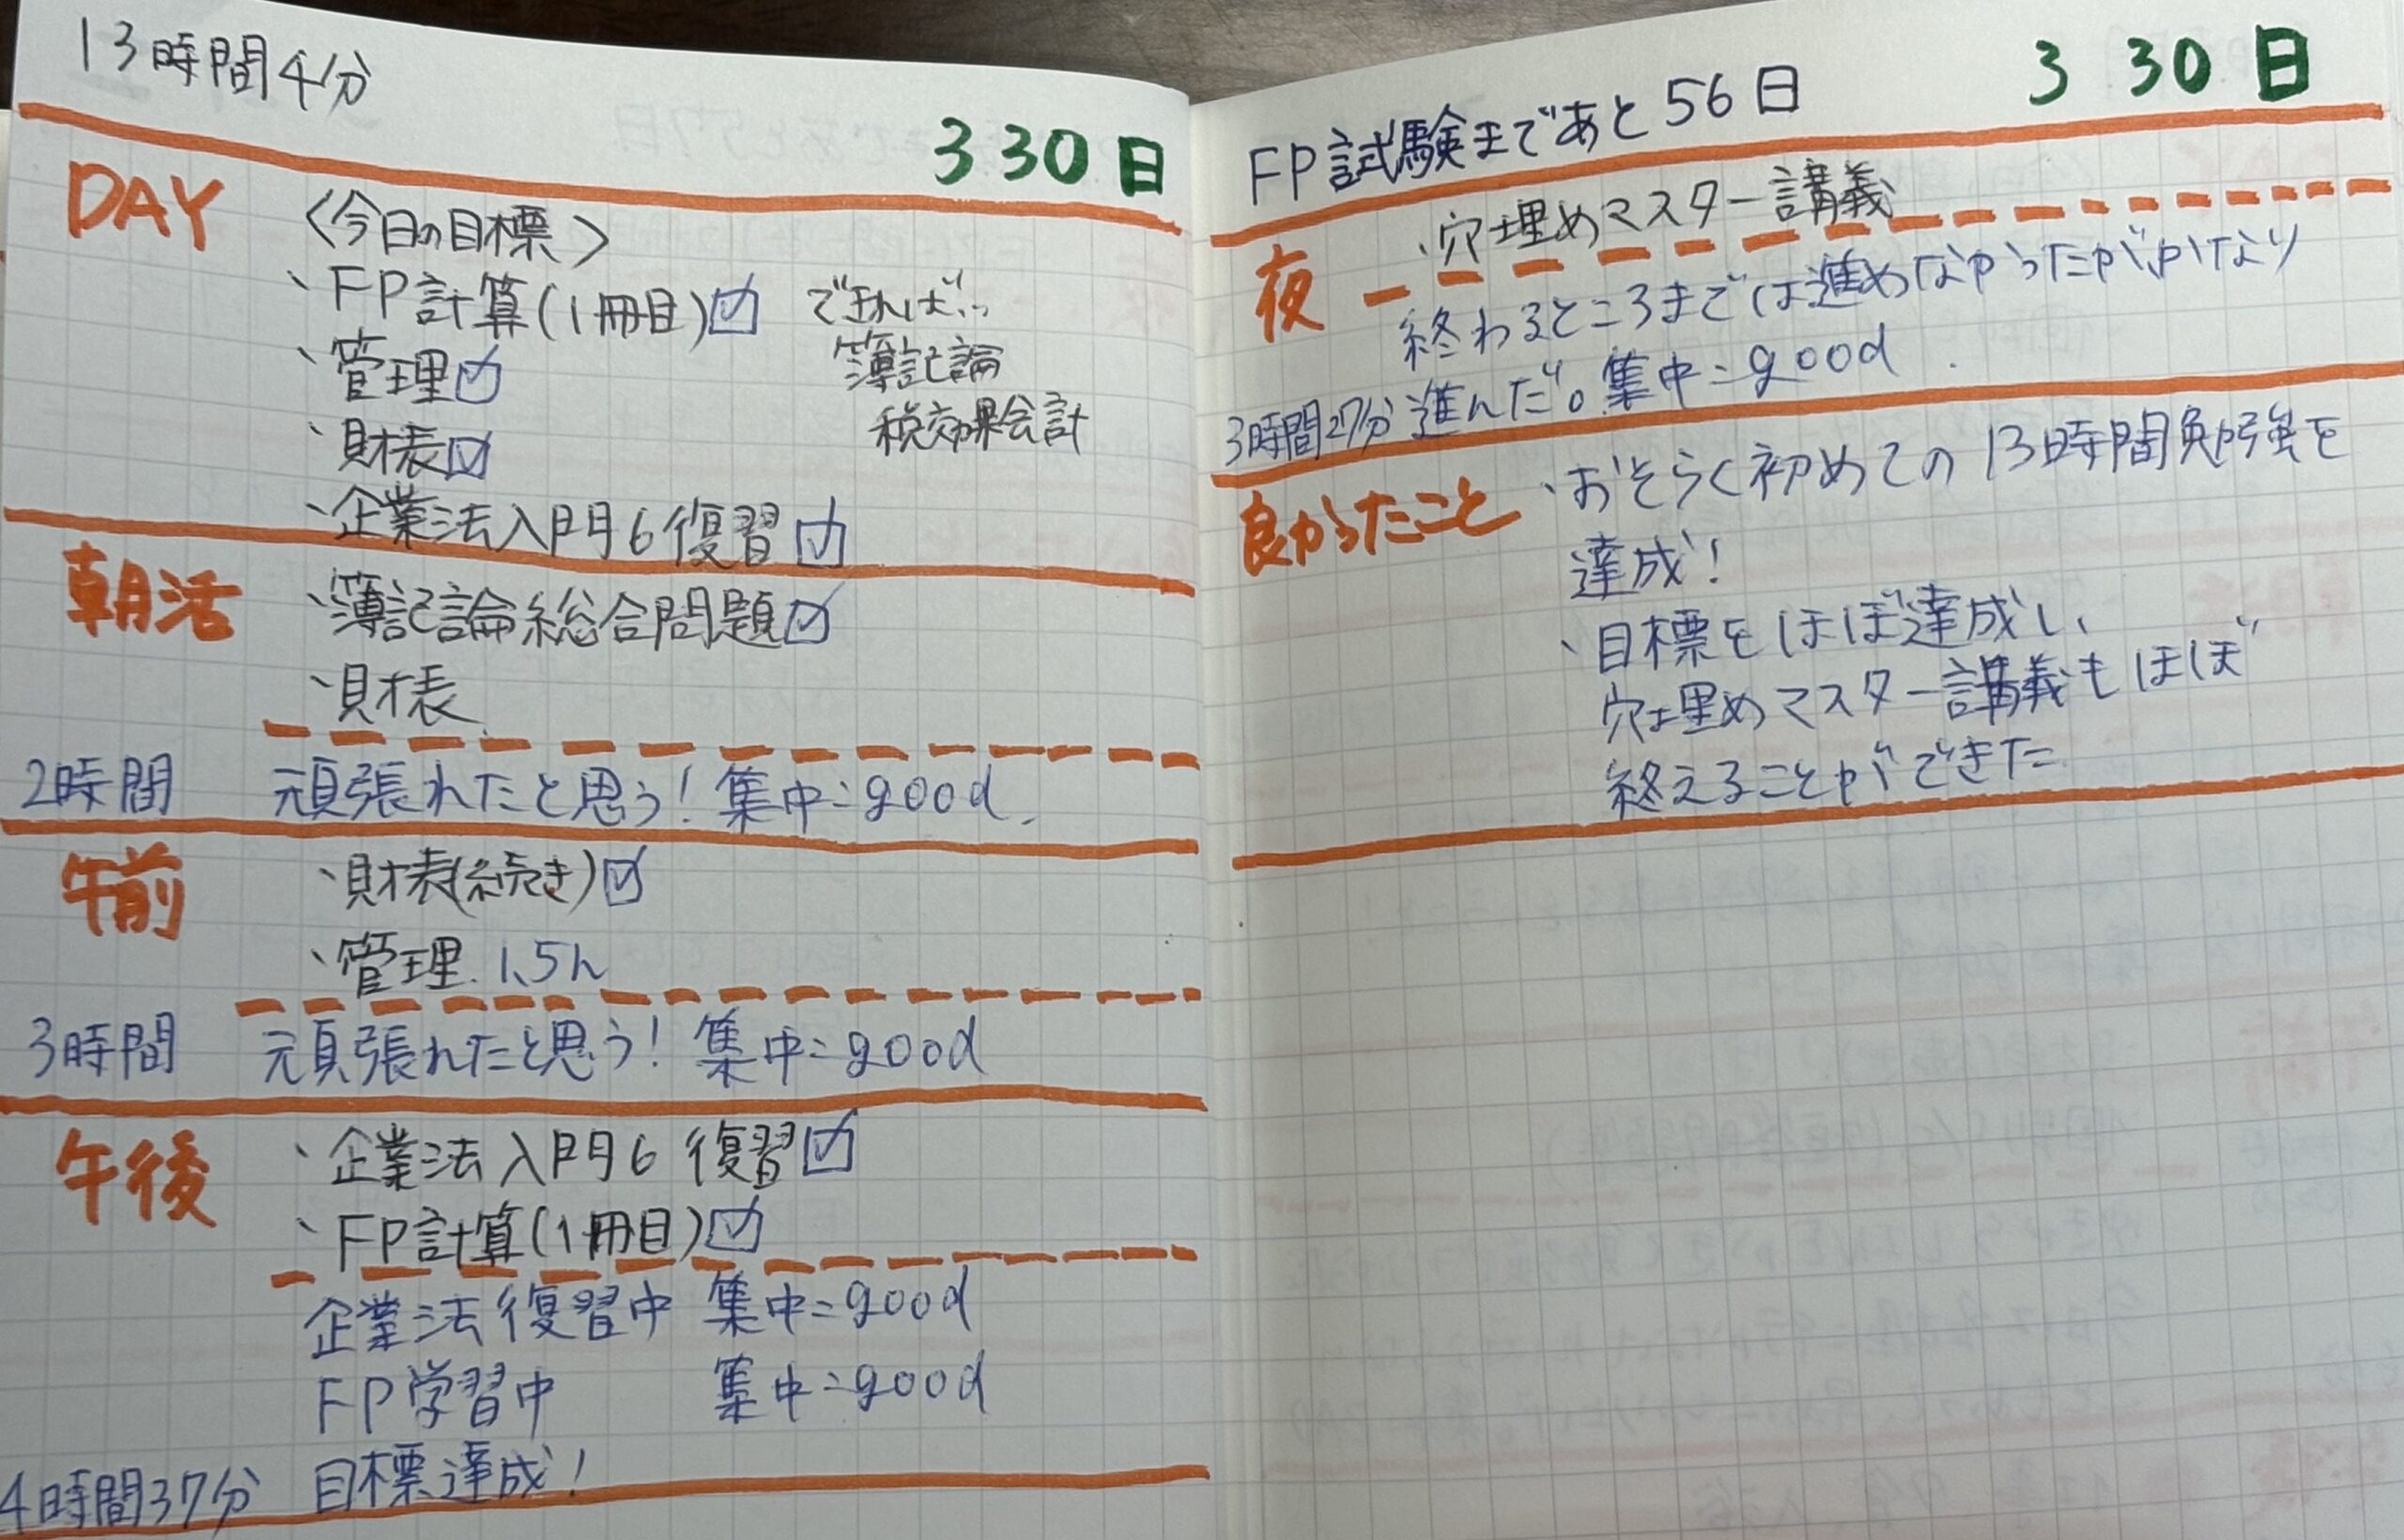 13時間4分
3 30日
DAY
〈今日の目標〉
・FP計算(1冊目)☑
・管理☑
・財表☑
・企業法入門6 復習☑
できれば…
簿記論
税効果会計
朝活
・簿記論総合問題☑
・財表
2時間 頑張れたと思う！集中=good.
午前
・財表(続き)☑
・管理 1.5h
3時間 頑張れたと思う！集中=good
午後
・企業法入門6 復習☑
・FP計算(1冊目)☑
企業法復習中 集中=good
FP学習中 集中=good
4時間37分 目標達成！
FP試験まであと56日 3 30日
夜
・穴埋めマスター講義
終わるところまでは進めなかったが、かなり
3時間27分 進んだ。集中=good.
良かったこと
・おそらく初めての13時間勉強を
達成！
・目標をほぼ達成し、
穴埋めマスター講義もほぼ
終えることができた